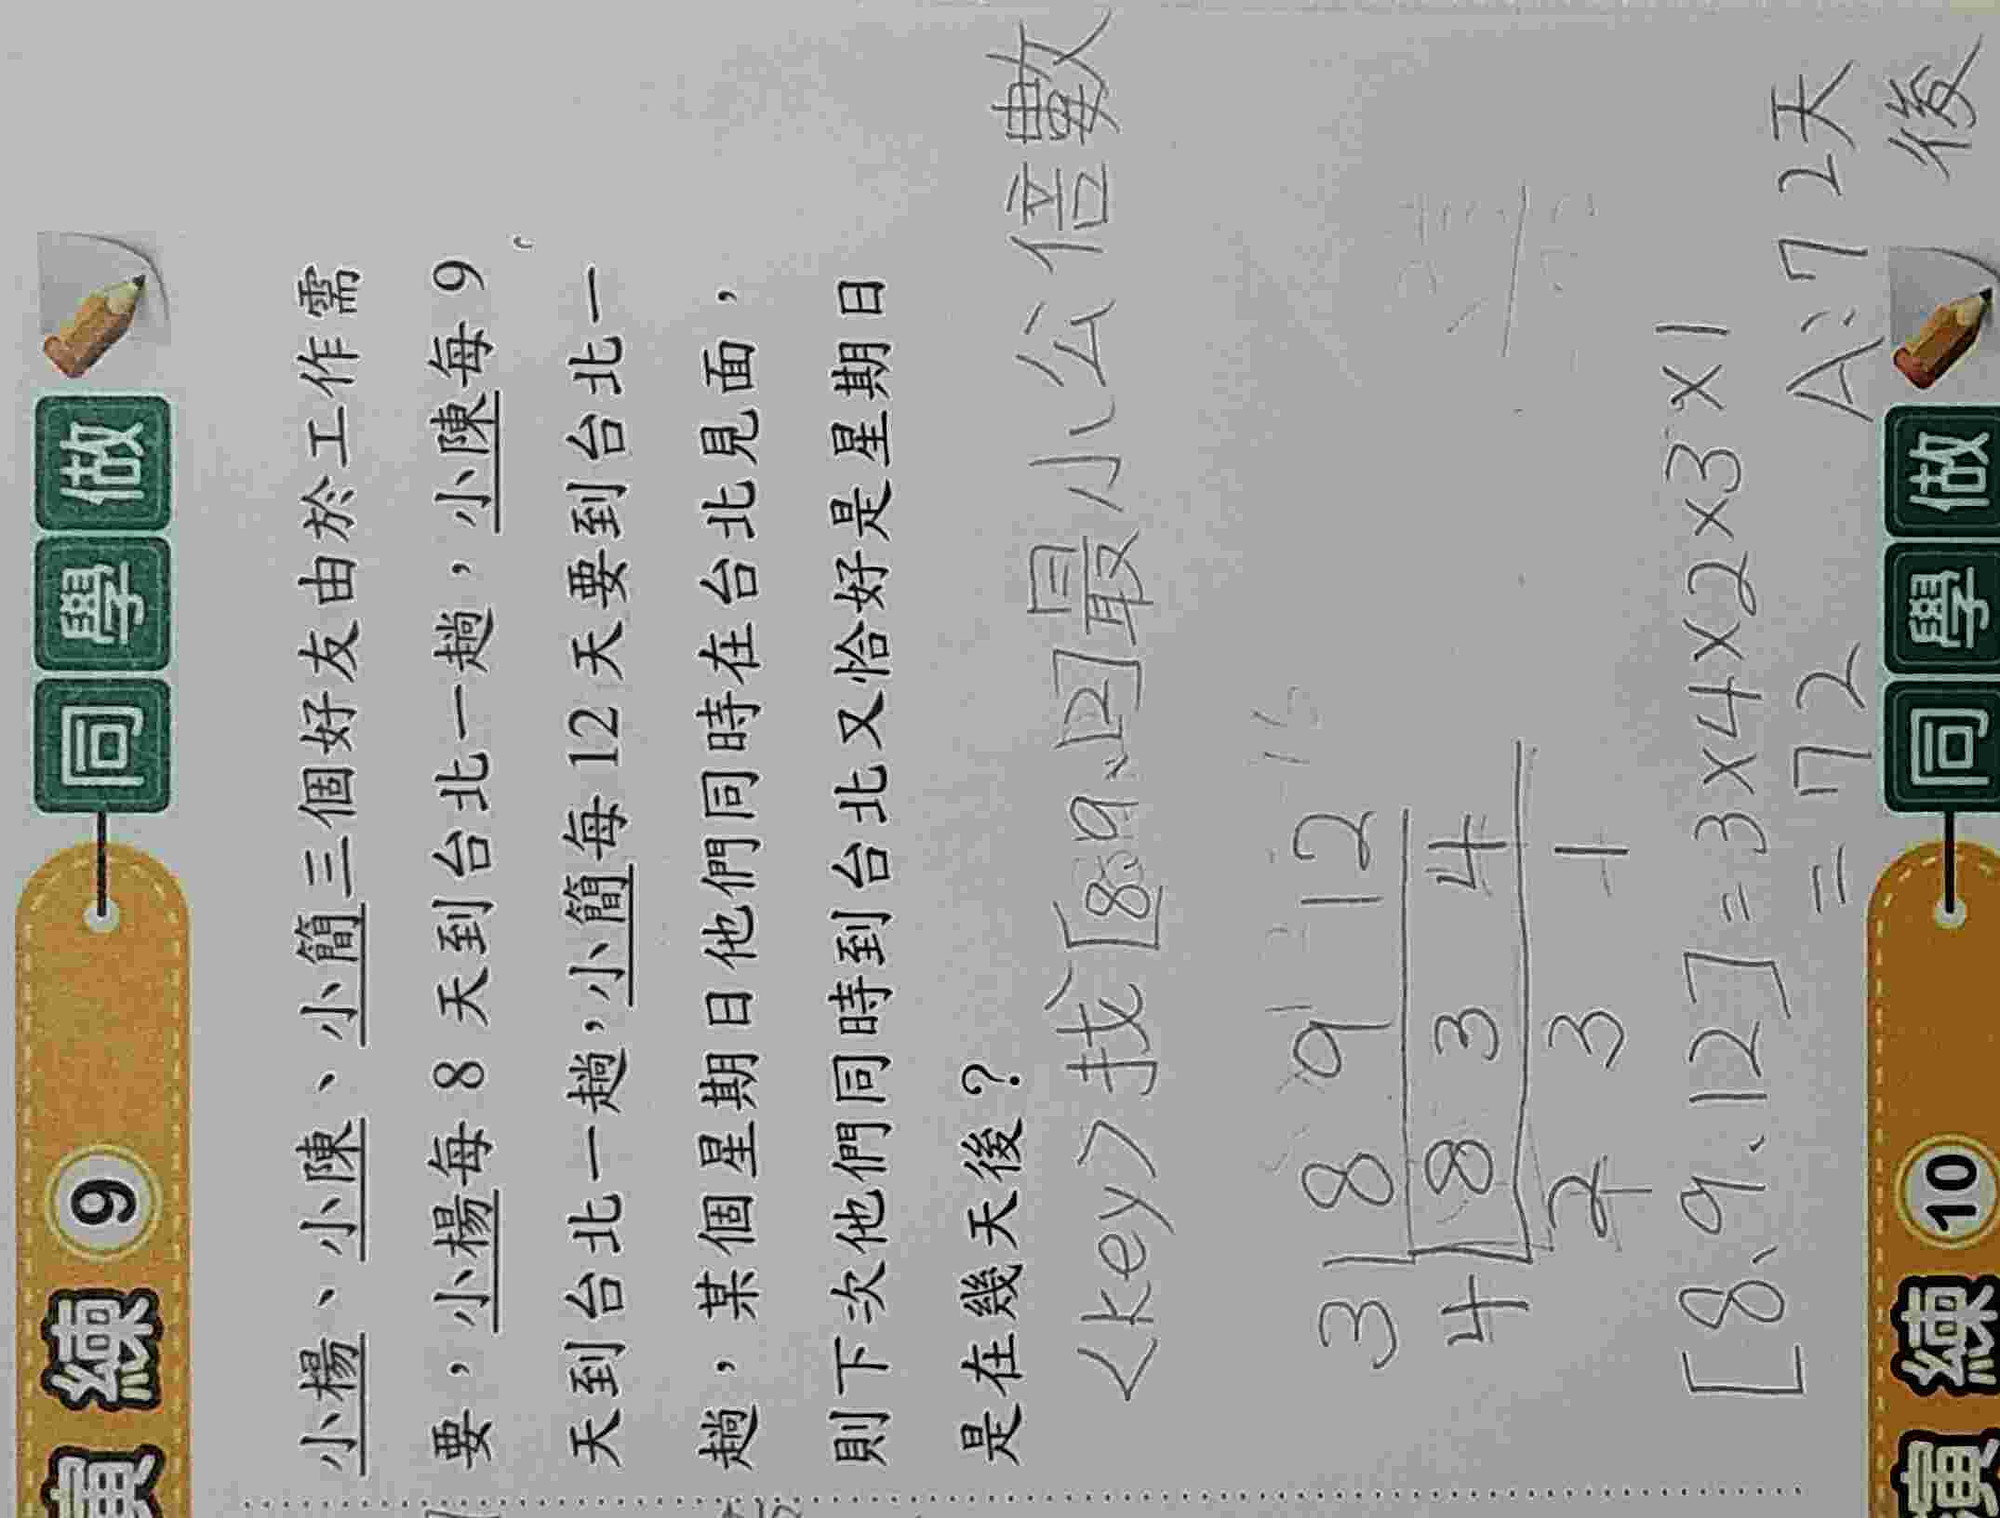 演練 9 同學做
小楊、小陳、小簡三個好友由於工作需
要，小楊每 8 天到台北一趟，小陳每 9
天到台北一趟，小簡每 12 天要到台北一
趟，某個星期日他們同時在台北見面，
則下次他們同時到台北又恰好是星期日
是在幾天後？
<key>找[8、9、12]最小公倍數
3 8 9 12
4 8 3 4
2 3 1
[8、9、12]=3×4×2×3×1
=72
A:72天
後
演練 10 同學做